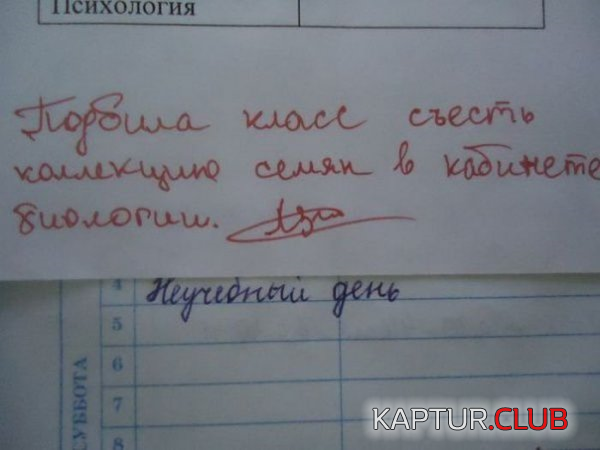 Психология
Подбила класс съесть
коллекцию семян в кабинете
биологии.
4 Неучебный день
5
6
7
8
СУББОТА
KAPTUR.CLUB